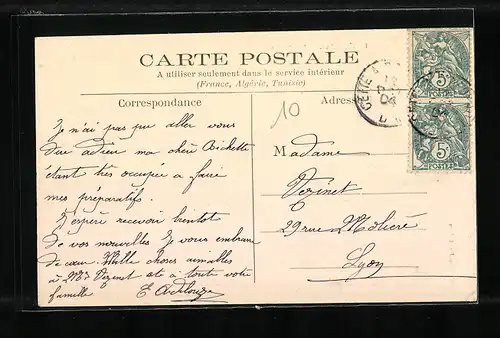 CARTE POSTALE
A utiliser seulement dans le service intérieur
(France, Algérie, Tunisie)
Correspondance
Adresse
10
Je n'ai pas pu aller vous
dire adieu ma chère Bichette
étant très occupée a faire
mes préparatifs.
J'espère recevoir bientot
de vos nouvelles Je vous embrasse
de cœur. Mille choses aimables
à Vezinet et à toute votre
famille
Madame
Vezinet
29 rue Molière
Lyon
5
5